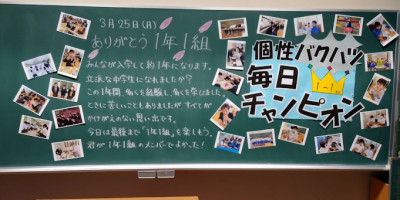 3月25日(月)
ありがとう1年1組
みんなが入学して約1年になります。
立派な中学生になれましたか?
この1年間、多くを経験し、多くを学びました。
ときに苦しいこともありましたが、すべてが
かけがえのない思い出です。
今日は最後まで「1年1組」を楽しもう。
君が1年1組のメンバーでよかった!
個性バクハツ
毎日
1-1
チャンピオン